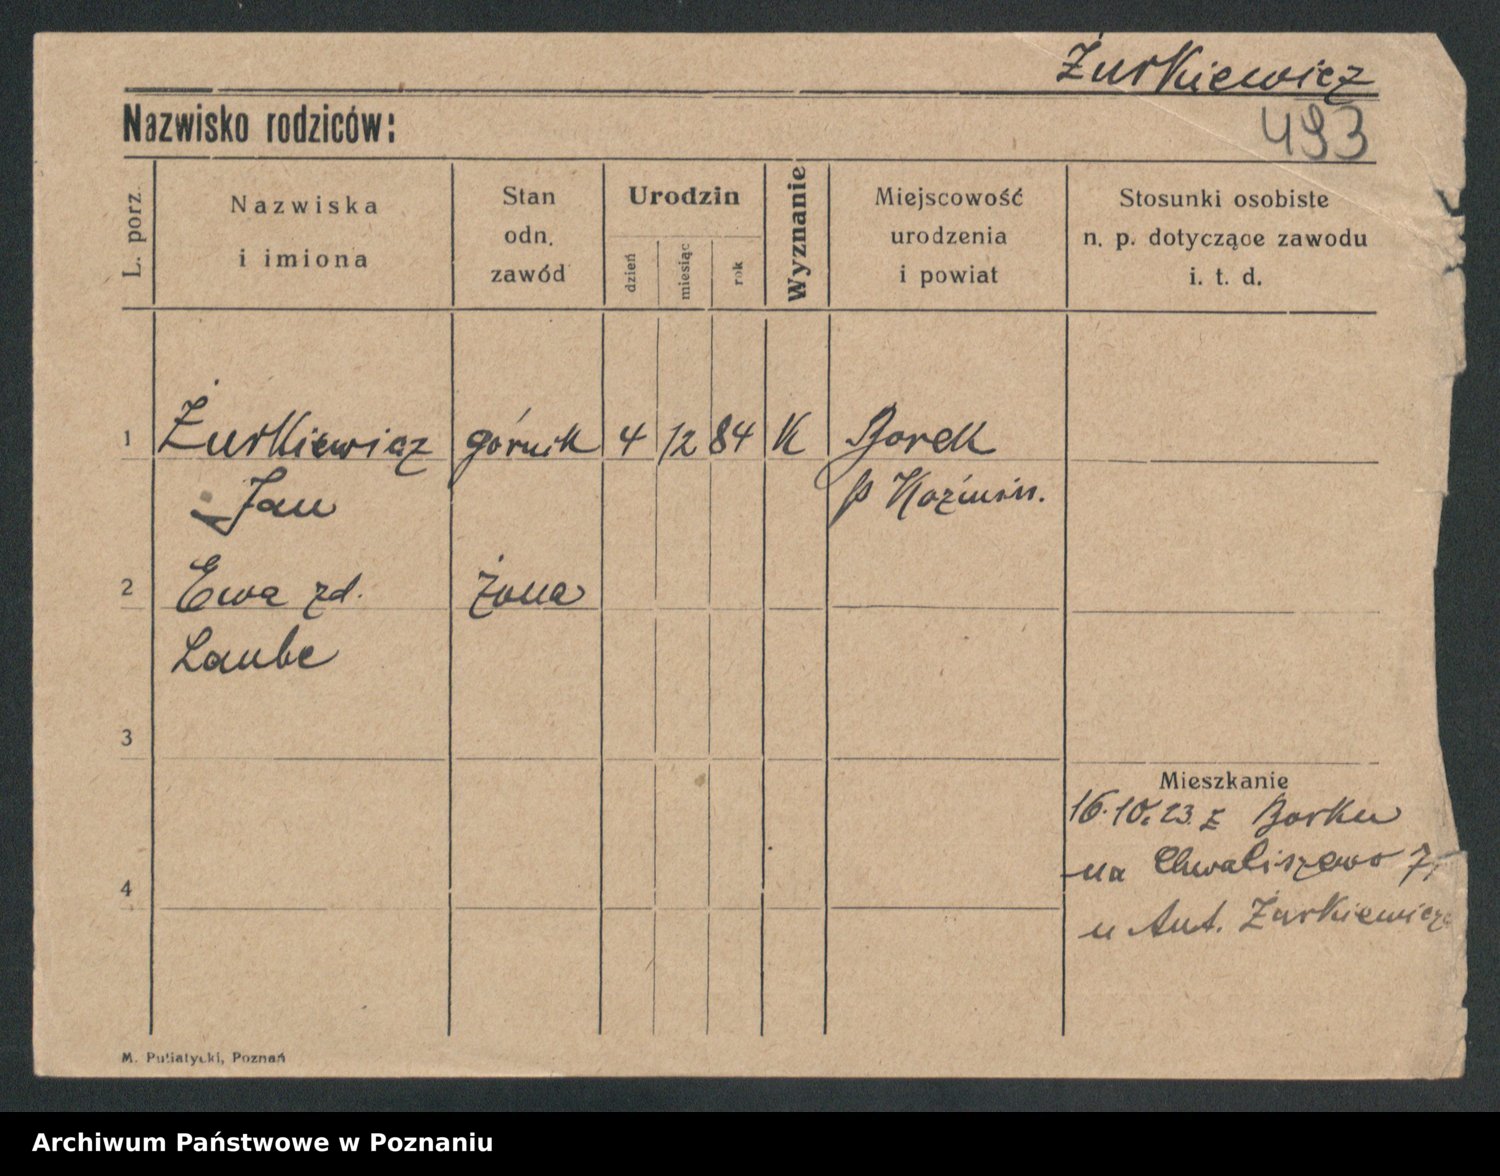 Żurkiewicz
Nazwisko rodziców:
493
L. porz.
Nazwiska
i imiona
Stan
odn.
zawód
Urodzin
dzień
miesiąc
rok
Wyznanie
Miejscowość
urodzenia
i powiat
Stosunki osobiste
n. p. dotyczące zawodu
i. t. d.
1 Żurkiewicz górnik 4 12 84 K Borek
Jan p Koźmin.
2 Ewa zd. żona
Laube
3
Mieszkanie
16.10.23. z Borku
na Chwaliszewo 7,
4
u Ant. Żurkiewicza
M. Putiatycki, Poznań
Archiwum Państwowe w Poznaniu